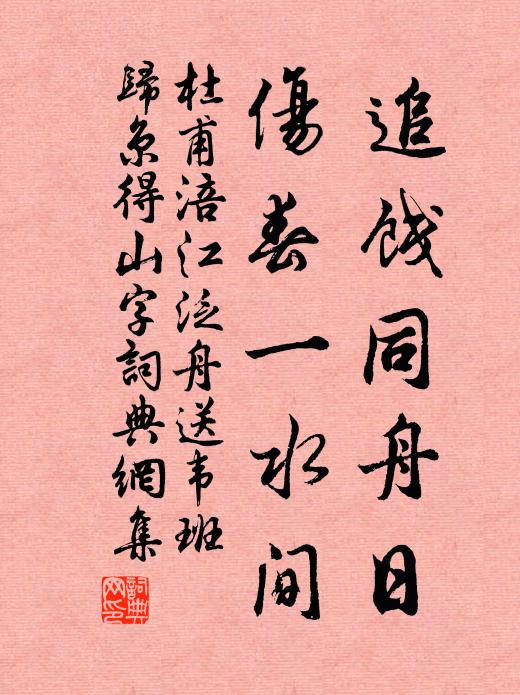 追饯同舟日
傷春一水间
杜甫涪江泛舟送韦班
歸京得山字詞典網集
詞典
网印